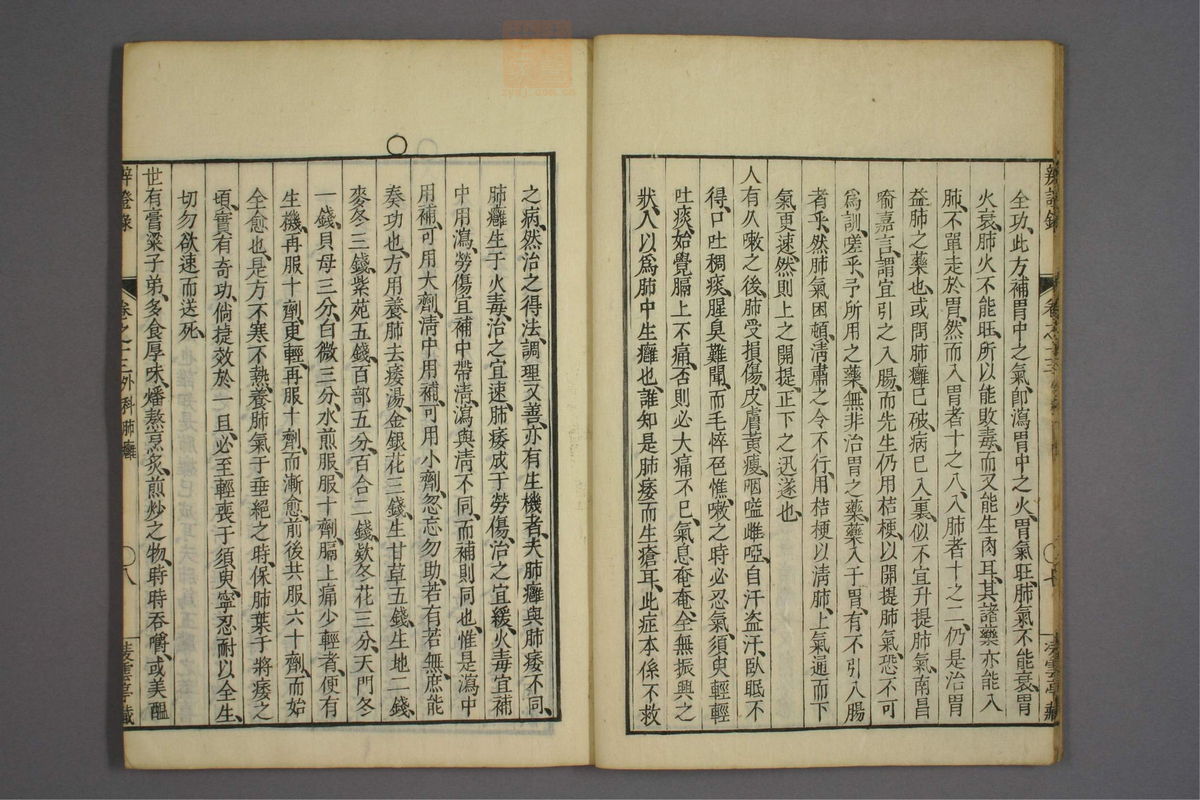 全功此方補胃中之氣卽瀉胃中之火胃氣旺肺氣不能衰胃
火衰肺火不能旺所以能敗毒而又能生肉耳其諸藥亦能入
肺不單走於胃然而入胃者十之八入肺者十之二仍是治胃
益肺之藥也或問肺癰已破病已入裏似不宜升提肺氣南昌
喻嘉言謂宜引之入腸而先生仍用桔梗以開提肺氣恐不可
爲訓嗟乎予所用之藥無非治胃之藥藥入于胃有不引入腸
者乎然肺氣困頓淸肅之令不行用桔梗以淸肺上氣通而下
氣更速然則上之開提正下之迅遂也
人有久嗽之後肺受損傷皮膚黃瘦咽嗌雌啞自汗盜汗臥眠不
得口吐稠痰腥臭難聞而毛悴色憔嗽之時必忍氣須臾輕輕
吐痰始覺膈上不痛否則必大痛不已氣息奄奄全無振興之
狀人以爲肺中生癰也誰知是肺痿而生瘡耳此症本係不救
之病然治之得法調理又善亦有生機者夫肺癰與肺痿不同
肺癰生于火毒治之宜速肺痿成于勞傷治之宜緩火毒宜補
中用瀉勞傷宜補中帶淸瀉與淸不同而補則同也惟是瀉中
用補可用大劑淸中用補可用小劑忽忘勿助若有若無庶能
奏功也方用養肺去痿湯金銀花三錢生甘草五錢生地二錢
麥冬三錢紫苑五錢百部五分百合二錢欵冬花三分天門冬
一錢貝母三分白微三分水煎服服十劑膈上痛少輕者便有
生機再服十劑更輕再服十劑而漸愈前後共服六十劑而始
全愈也是方不寒不熱養肺氣于垂絕之時保肺葉于將痿之
頃實有奇功倘捷效於一旦必至輕喪于須臾寧忍耐以全生
切勿欲速而送死
世有膏粱子弟多食厚味燔熬烹炙煎炒之物時時吞嚼或美醞
辨證錄 卷之十三外科肺癰 八 凌雲亭藏